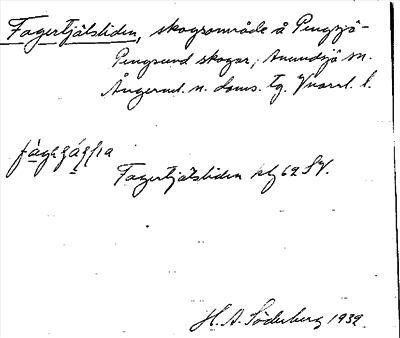 Fagertjälsliden, skogsområde å Pengsjö-
Pengsund skogar, Anundsjö sn.
Ångerml. n. doms. tg. Vnorrl. l.
Fagertjälsliden ktj 62 SV.
H. A. Söderberg 1932